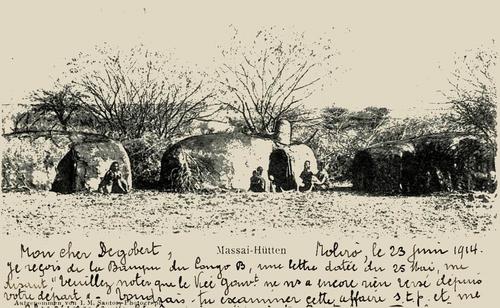 Massai-Hütten
Mon cher Degobert, Moliro, le 23 juin 1914.
Je reçois de la Banque du Congo B, une lettre datée du 25 Mai, me
disant "Veuillez noter que le Vice Gouvt ne ns a encore rien versé depuis
votre départ - tu examiner cette affaire s.t.p. et me
Aufgenommen von I. M. Santos